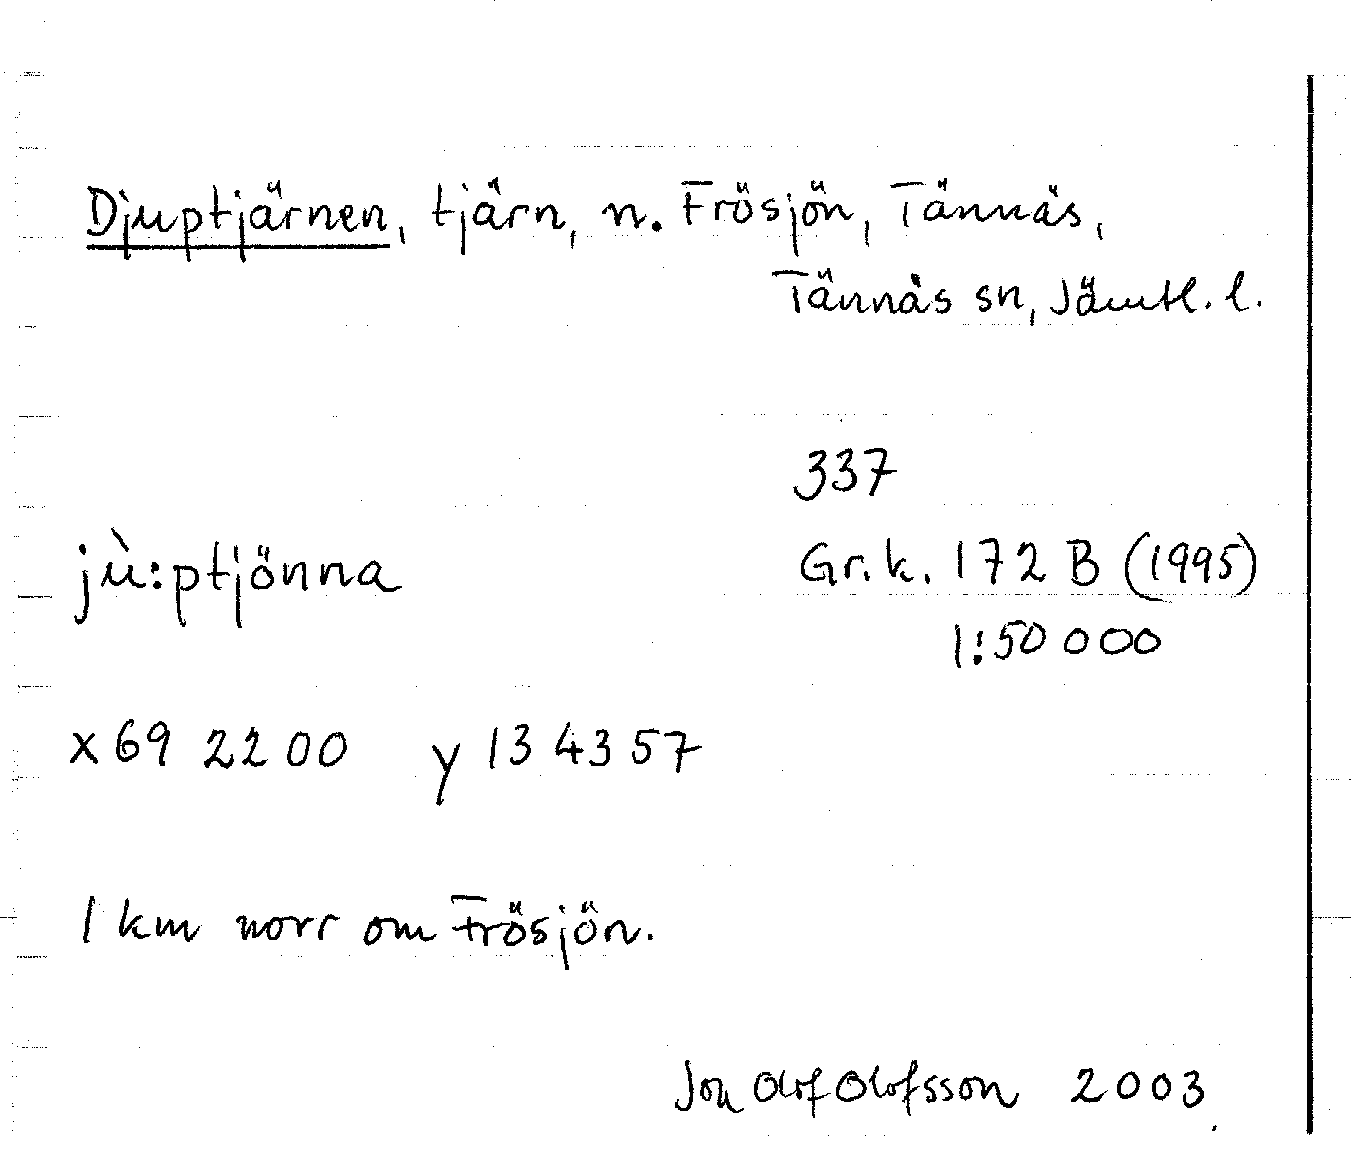 Djuptjärnen, tjärn, n. Frösjön, Tännäs,
Tännäs sn, Jämtl. l.
337
jù:ptjönna
Gr. k. 172 B (1995)
1:50 000
x 69 22 00 y 13 43 57
1 km norr om Frösjön.
Jon Olof Olofsson 2003